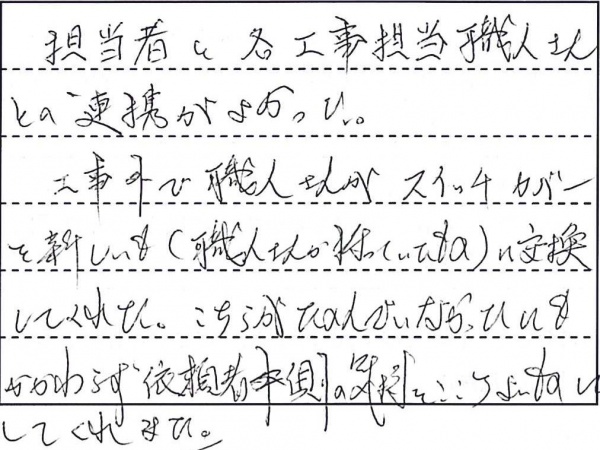 担当者と各工事担当職人さん
との連携がよかった。
工事外で職人さんがスイッチカバー
を新しいも(職人さんが持っていたもの)に交換
してくれた。こちらがたのんでいなかったにも
かかわらず依頼者側の気持をここちよいものに
してくれました。